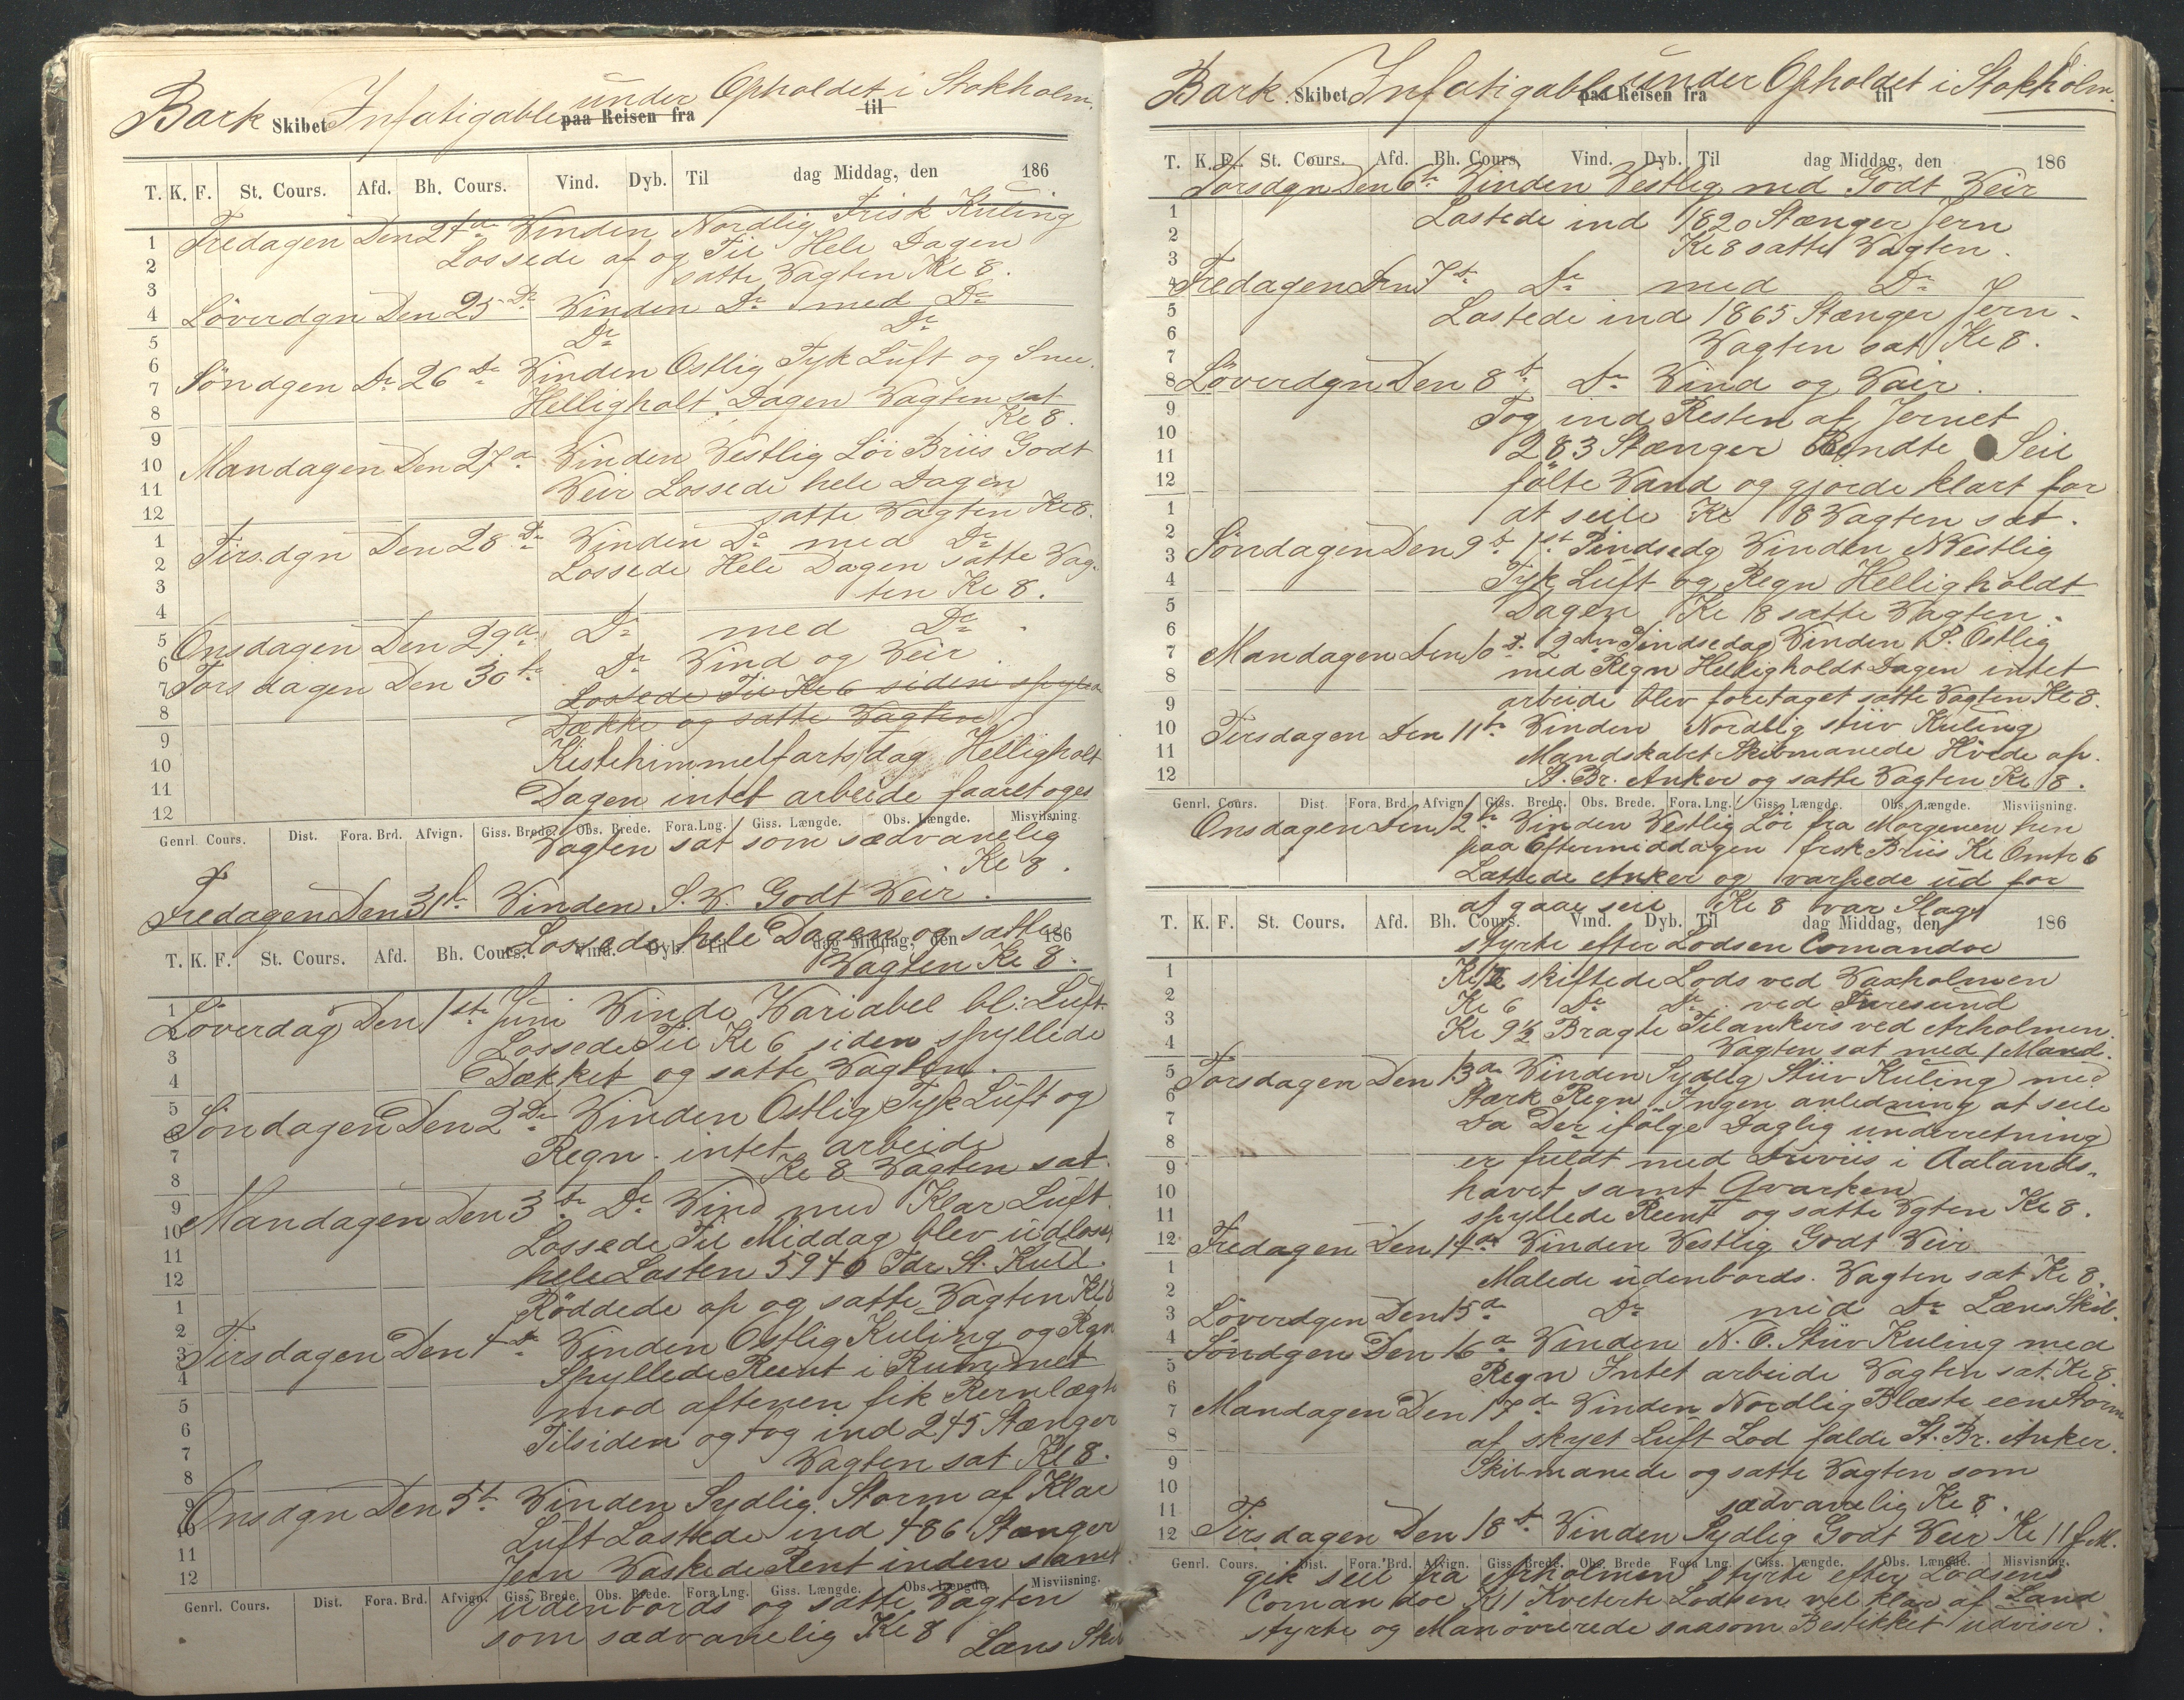 Bark Skibet Infatigable under paa Reisen fra Opholdet i Stokholm. til
T. K. F. St. Cours. Afd. Bh. Cours. Vind. Dyb. Til dag Middag, den 186
Fredagen Den 24de Vinden Nordlig Frisk Kuling
Lossede af og Til Hele Dagen
satte Vagten Kl 8.
Löverdgn Den 25 De Vinden Do med Do
Do Do
Söndgen Dn 26 De Vinden Ostlig Tyk Luft og Snee.
Helligholt Dagen Vagten sat
Kl 8.
Mandagen Den 27de Vinden Vestlig Löi Briis Godt
Veir Lossede hele Dagen
satte Vagten Kl 8.
Tirsdgn Den 28 De Vinden Do med Do
Lossede Hele Dagen satte Vag-
ten Kl 8.
Onsdagen Den 29de Do med Do.
Torsdagen Den 30te Do Vind og Veir.
Lossede Til Kl 6 siden spylede
Dække og satte Vagten
Kristihimmelfartsdag Helligholt
Dagen intet arbeide faaretoges
Genrl. Cours. Dist. Fora. Brd. Afvign. Giss. Brede. Obs. Brede. Fora. Lng. Giss. Længde. Obs. Længde. Misviisning.
Vagten sat som sædvanelig
Kl 8.
Fredagen Den 31te Vinden S. V. Godt Veir.
Lossede hele Dagen og satte
T. K. F. St. Cours. Afd. Bh. Cours. Vind. Dyb. Til dag Middag, den 186
Vagten Kl 8.
Löverdag Den 1ste Juni Vinde Variabel bl: Luft.
Lossede Til Kl 6 siden spyllede
Dækket og satte Vagten.
Söndagen Den 2De Vinden Ostlig Tyk Luft og
Regn. intet arbeide
Kl 8 Vagten sat.
Mandagen Den 3te Do Vind med Klar Luft.
Lossede Til Middag blev udlosset
hele Lasten 5940 Tdr St. Kull.
Röddede op og satte Vagten Kl 8
Tirsdagen Den 4De Vinden Ostlig Kuling og Rgn
Spyllede Reent i Rummet
mod aftenen fik Jernlægte
Tilsiden og tog ind 245 Stænger
Vagten sat Kl 8.
Onsdgn Den 5te Vinden Sydlig Storm af Klar
Luft Lastede ind 486 Stænger
Jern Vaskede Rent inden samt
Genrl. Cours. Dist. Fora. Brd. Afvign. Giss. Brede. Obs. Brede. Fora. Lng. Giss. Længde. Obs. Længde. Misviisning.
udenbords og satte Vagten
som sædvanelig Kl 8 Læns Skib
Bark Skibet Infatigable under paa Reisen fra Opholdet i Stokholm. til
T. K. F. St. Cours. Afd. Bh. Cours. Vind. Dyb. Til dag Middag, den 186
Torsdgn Den 6te Vinden Vestlig med Godt Veir
Lastede ind 1820 Stænger Jern
Kl 8 satte Vagten.
Fredagen Den 7de Do med Do
Lastede ind 1865 Stænger Jern.
Vagten sat Kl 8.
Löverdgn Den 8de Do Vind og Vair.
Tog ind Resten af Jernet
283 Stænger Bendte Seil
fölte Vand og gjorde klart for
at seile Kl 8 Vagten sat.
Söndagen Den 9de 1st Pindsedg Vinden NVestlig
Tyk Luft og Regn Helligholdt
Dagen Kl 8 satte Vagten.
Mandagen Den 10de 2den Pindsedag Vinden S. Ostlig
med Regn Helligholdt Dagen intet
arbeide blev foretaget satte Vagten Kl 8.
Tirsdagen Den 11te Vinden Nordlig stiv Kuling
Mandskabet Skibmanede Hivede op.
St. Br. Anker og satte Vagten Kl 8.
Genrl. Cours. Dist. Fora. Brd. Afvign. Giss. Brede. Obs. Brede. Fora. Lng. Giss. Længde. Obs. Længde. Misviisning.
Onsdagen Den 12te Vinden Vestlig Löi fra Morgenen hen
paa Eftermiddagen frsk Briis Kl Omtr 6
Lættede Anker og varpede ud for
at gaae seil Kl 8 var Slagt
T. K. F. St. Cours. Afd. Bh. Cours. Vind. Dyb. Til dag Middag, den 186
styrte efter Lodsen Comandoe
Kl 12 skiftede Lods ved Vaxholmen
Kl 6 Do Do ved Furesund
Kl 9½ Bragte Tilankers ved Arholmen.
Vagten sat med 1 Mand.
Torsdagen Den 13de Vinden Sydlig Stiv Kuling med
Stærk Regn Ingen anledning at seile
Da Der ifölge Daglig underretning
er fuldt med Driviis i Aalands-
havet samt Qvarken
spyllede Reent og satte Vgten Kl 8.
Fredagen Den 14de Vinden Vestlig Godt Veir
Malede udenbords. Vagten sat Kl 8.
Löverdgen Den 15de Do med Do Læns Skib.
Söndgen Den 16de Vinden N. O. Stiv Kuling med
Regn Intet arbeide Vagten sat Kl 8.
Mandagen Den 17de Vinden Nordlig Blæste een Storm
af skyet Luft Lod falde St. Br. Anker.
Skibmanede og satte Vagten som
sædvanelig Kl 8.
Tirsdagen Den 18de Vinden Sydlig Godt Veir Kl 11 f.M.
Genrl. Cours. Dist. Fora. Brd. Afvign. Giss. Brede. Obs. Brede. Fora Lng. Giss. Længde. Obs. Længde. Misvisning.
gik seil fra Arholmen styrte efter Lodsens
Comandoe Kl 1 Kviterte Lodsen vel klar af Land
styrte og Manövrerede saasom Bestikket udviser.